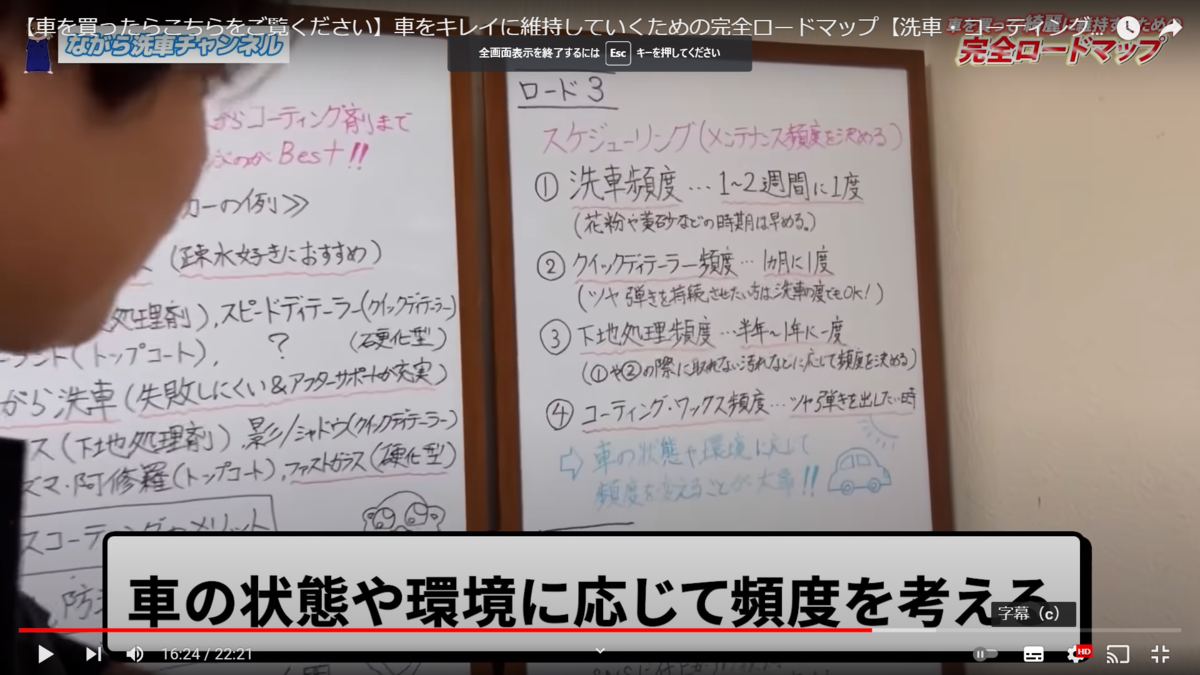 【車を買ったらこちらをご覧ください】車をキレイに維持していくための完全ロードマップ【洗車・コーティング...
ながら洗車チャンネル
完全ロードマップ
全画面表示を終了するには Esc キーを押してください
からコーティング剤まで
のが Best!!
カーの例≫
(疎水好きにおすすめ)
処理剤), スピードディテーラー(クイックディテーラー)
(トップコート), ? (硬化型)
がら洗車(失敗しにくい&アフターサポートが充実)
ス(下地処理剤) 影/シャドウ(クイックディテーラー)
ズマ・阿修羅(トップコート), ファストガラス(硬化型)
スコーティング メリット
防
ロード3
スケジューリング(メンテナンス頻度を決める)
① 洗車頻度…1~2週間に1度
(花粉や黄砂などの時期は早める。)
② クイックディテーラー頻度…1カ月に1度
(ツヤ弾きを持続させたい方は洗車の度でもOK!)
③ 下地処理頻度…半年~1年に一度
(①や②の際に取れない汚れなどに応じて頻度を決める)
④ コーティング・ワックス頻度…ツヤ弾きを出したい時
⇨ 車の状態や環境に応じて
頻度を変えることが大事!!
車の状態や環境に応じて頻度を考える
字幕 (c)
16:24 / 22:21
HD